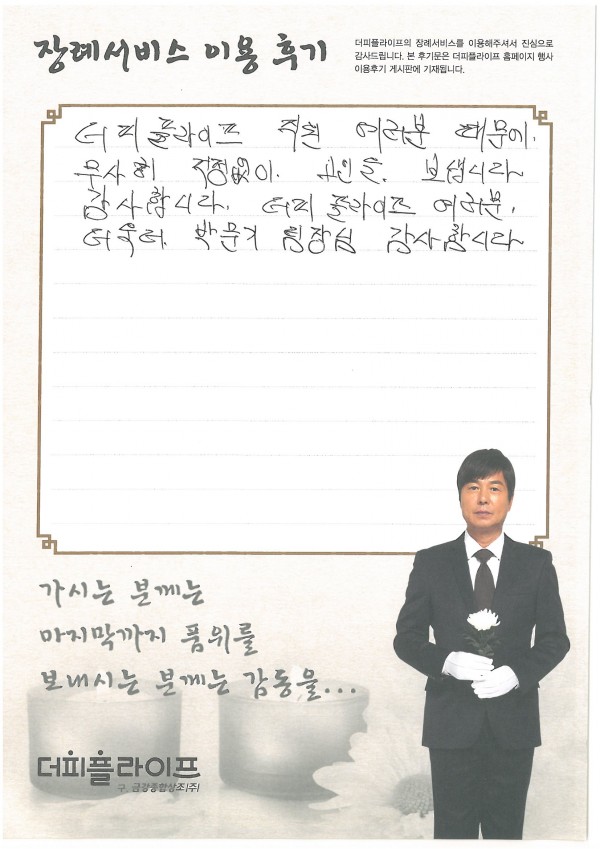 장례서비스 이용 후기
더피플라이프의 장례서비스를 이용해주셔서 진심으로
감사드립니다. 본 후기문은 더피플라이프 홈페이지 행사
이용후기 게시판에 기재됩니다.
더피플라이프 직원 여러분 때문에.
무사히 걱정없이. 고인을. 보냅니다
감사합니다. 더피플라이프 여러분.
더욱더. 박문기 팀장님 감사합니다
가시는 분께는
마지막까지 품위를
보내시는 분께는 감동을...
더피플라이프
구. 금강종합상조(주)